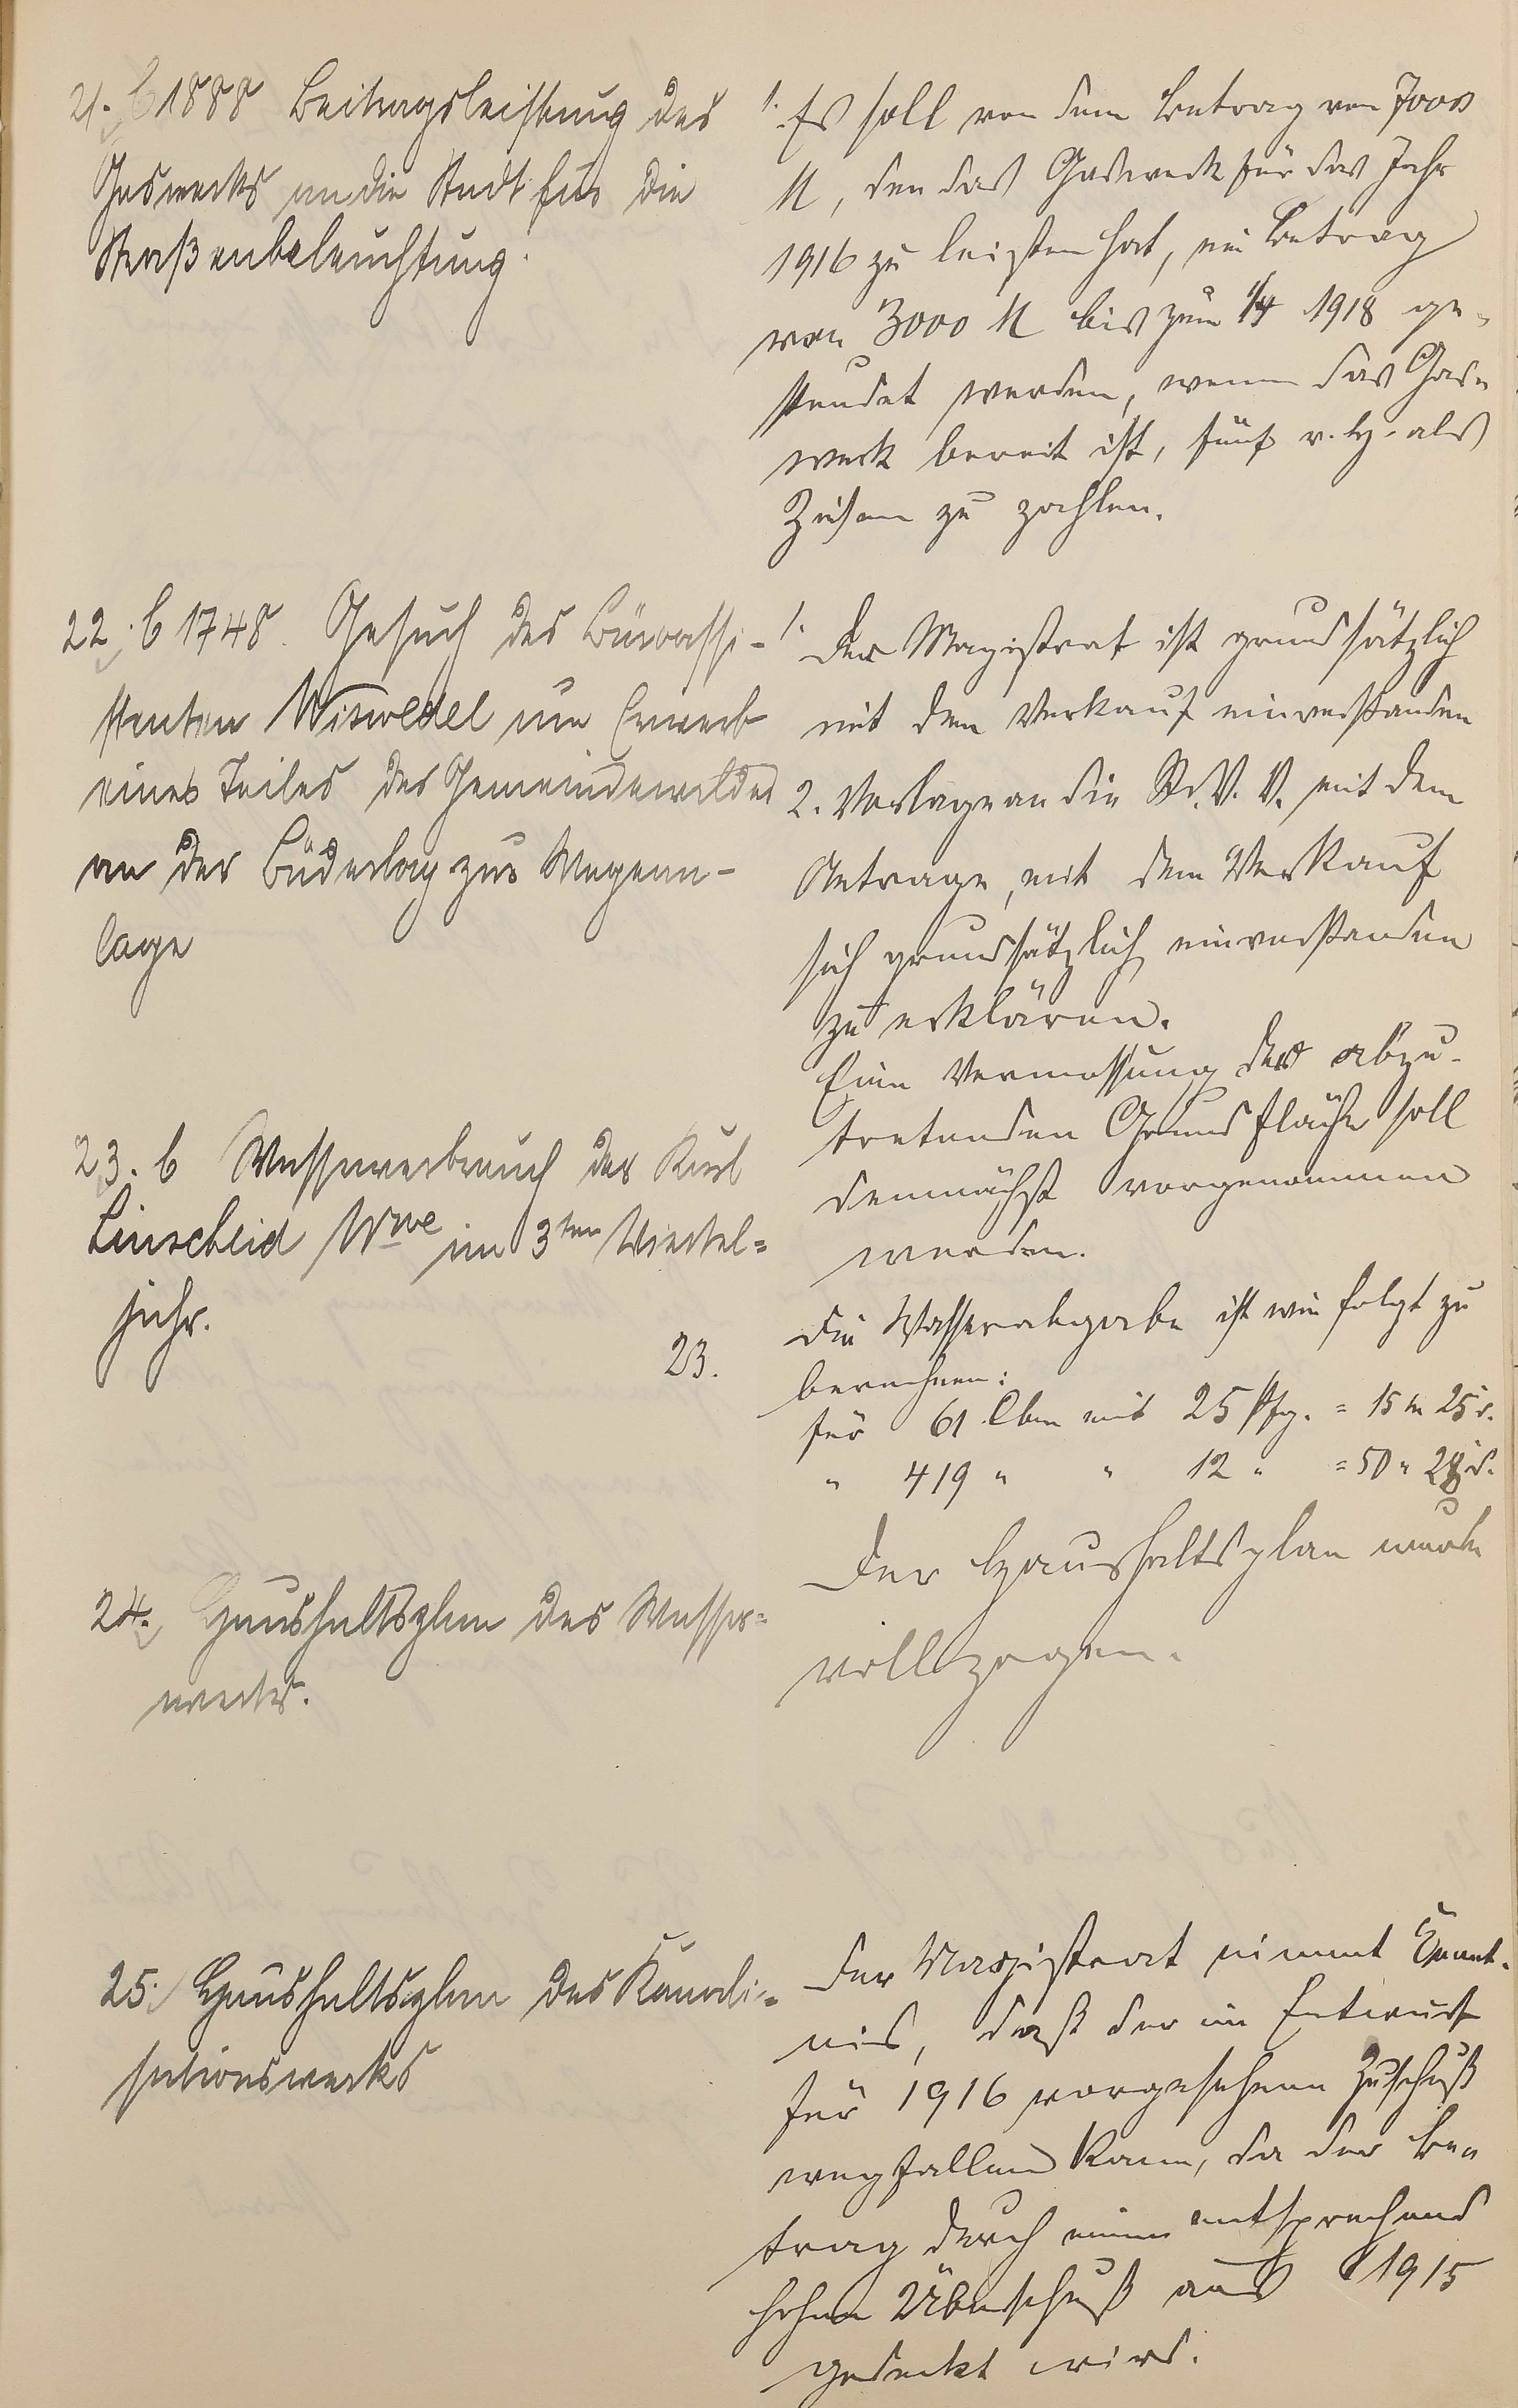 21. C 1888 Beitragsleistung des
Gaswerks an die Stadt für die
Straßenbeleuchtung.
1. Es soll von dem Betrag von 7000
M, den das Gaswerk für das Jahr
1916 zu leisten hat, ein Betrag
von 3000 M bis zum 1/4 1918 ge-
stundet werden, wenn das Gas-
werk bereit ist, fünf v. H. als
Zinsen zu zahlen.
22. C 1748. Gesuch des Büroassi-
stenten Wiswedel um Erwerb
eines Teiles des Gemeindewaldes
an der zur Wegean-
lage
1. Der Magistrat ist grundsätzlich
mit dem Verkauf einverstanden
2. Vorlage an die St. V. V. mit dem
Antrage, mit dem Verkauf
sich grundsätzlich einverstanden
zu erklären.
Eine Vermessung der abzu-
tretenden Grundfläche soll
demnächst vorgenommen
werden.
23. C Wasserverbrauch der Karl
Linscheid Wwe im 3ten Viertel=
jahr.
23. Die Wasserabgabe ist wie folgt zu
berechnen:
für 61 Cbm mit 25 Pfg. = 15 M 25 d.
" 419 " " 12 " = 50 " 28 d.
24. Haushaltsplan des Wasser=
werks.
Der Haushaltsplan wurde
vollzogen.
25. Haushaltsplan des Kanali=
sationswerks
Der Magistrat nimmt Kennt-
nis, daß der im Entwurf
für 1916 vorgesehene Zuschuß
wegfallen kann, da der Be-
trag durch einen entsprechend
hohen Überschuß aus 1915
gedeckt wird.